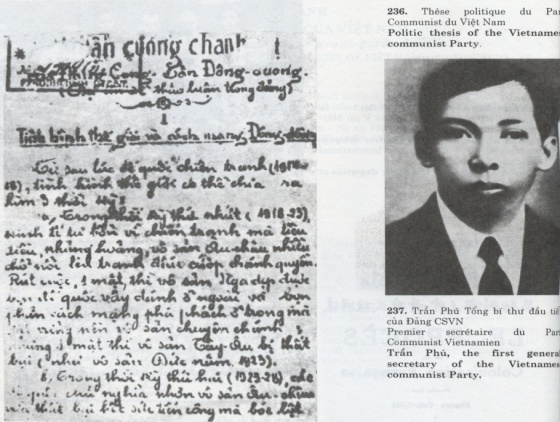 ận cương chanh
Đông-dương.
(thảo luận trong đảng)
I
Tình hình thế giới và cách mạng Đông-dương
Từ sau lúc đế quốc chiến tranh (1914-
18), tình hình thế giới có thể chia ra
làm 3 thời kỳ:
a, Trong thời kỳ thứ nhất (1918-23),
kinh tế tư bổn vì chiến tranh mà tiêu
tiều, khủng hoảng, vô sản Âu châu nhiều
chỗ nổi lên tranh đấu cướp chánh quyền.
Rút cuộc, 1 mặt, thì vô sản Nga dẹp được
bọn đế quốc vây đánh ở ngoài và bọn
phản cách mạng phá phách ở trong mà
nên vô sản chuyên chính;
1 mặt thì vô sản Tây-Âu bị thất
bại (như vô sản Đức năm 1923).
b, Trong thời kỳ thứ hai (1923-28),
chủ nghĩa nhơn vô sản Âu-châu
thất bại hết sức tấn công mà bóc lột
236. Thèse politique du Par
Communist du Việt Nam
Politic thesis of the Vietnames
communist Party.
237. Trần Phú Tổng bí thư đầu tiê
của Đảng CSVN
Premier secrétaire du Par
Communist Vietnamien
Trần Phú, the first genera
secretary of the Vietnames
communist Party.